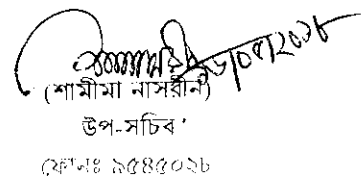 (শামীমা নাসরীন)
উপ-সচিব
ফোনঃ ৯৫৪৫০২৮